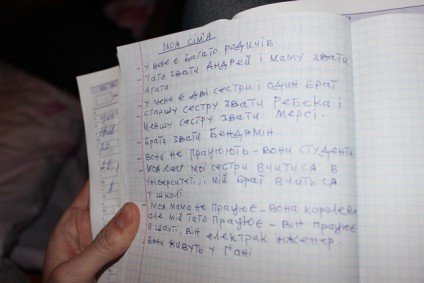 МОЯ СІМ'Я
- У мене є багато родичів
- Тата звати Андрей і маму звати
Агата
- У мене є дві сестри і один брат
- старшу сестру звати Ребека і
меншу сестру звати Мерсі.
- Брата звати Бендямін.
- вони не працюють - вони студенти
- Моя мы сестри вчиться в
університеті, і мій брат вчиться
у школі
- Моя мама не працює - вона королева
але мій тато працює - він працює
в шахті, він електрик інженер.
- Вони живуть у Гані